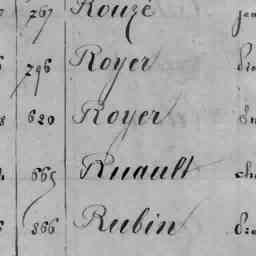 267 Rouzé
796 Royer
620 Royer
665 Ruault
866 Rubin